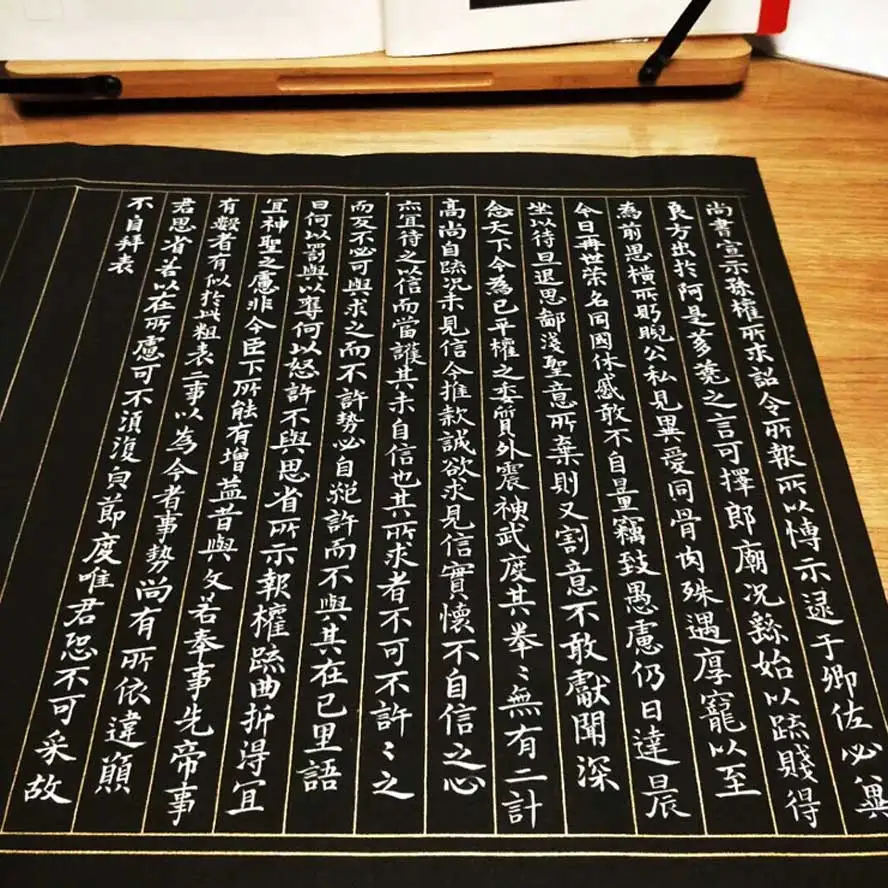 尚書宣示孫權所求詔令所報所以博示逮于卿佐必冀
良方出於阿是芻蕘之言可擇郎廟況繇始以疏賤得
為前思橫所眄睨公私見異愛同骨肉殊遇厚寵以至
今日再世榮名同國休慼敢不自量竊致愚慮仍日達晨
坐以待旦退思鄙淺聖意所棄則又割意不敢獻聞深
念天下今為已平權之委質外震神武度其拳〻無有二計
高尚自疏況未見信今推款誠欲求見信實懷不自信之心
亦宜待之以信而當護其未自信也其所求者不可不許〻之
而反不必可與求之而不許勢必自絕許而不與其在已里語
曰何以罰與以奪何以怒許不與思省所示報權疏曲折得宜
宜神聖之慮非今臣下所能有增益昔與文若奉事先帝事
有數者有似於此粗表二事以為今者事勢尚有所依違願
君思省若以在所慮可不須復白節度唯君恐不可采故
不自拜表